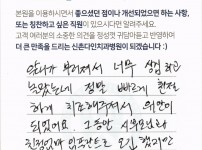 본원을 이용하시면서 좋으셨던 점이나 개선되었으면 하는 사항,
또는 칭찬하고 싶은 직원이 있으시다면 알려주세요.
고객 여러분의 소중한 의견을 정성껏 귀담아듣고 반영하여
더 큰 만족을 드리는 신촌다인치과병원이 되겠습니다 :)
앞니가 부러져서 너무 상심하고
놀랐는데 정말 빠르게 완전
하게 치료해주셔서 위안이
되었어요. 그동안 시부모님과
친정엄마 임플란트로 모시고